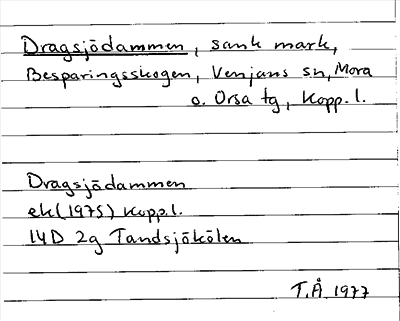 Dragsjödammen, sank mark,
Besparingsskogen, Venjans sn, Mora
o. Orsa tg, Kopp. l.
Dragsjödammen
ek (1975) Kopp.l.
14D 2g Tandsjökölen
T.Å 1977